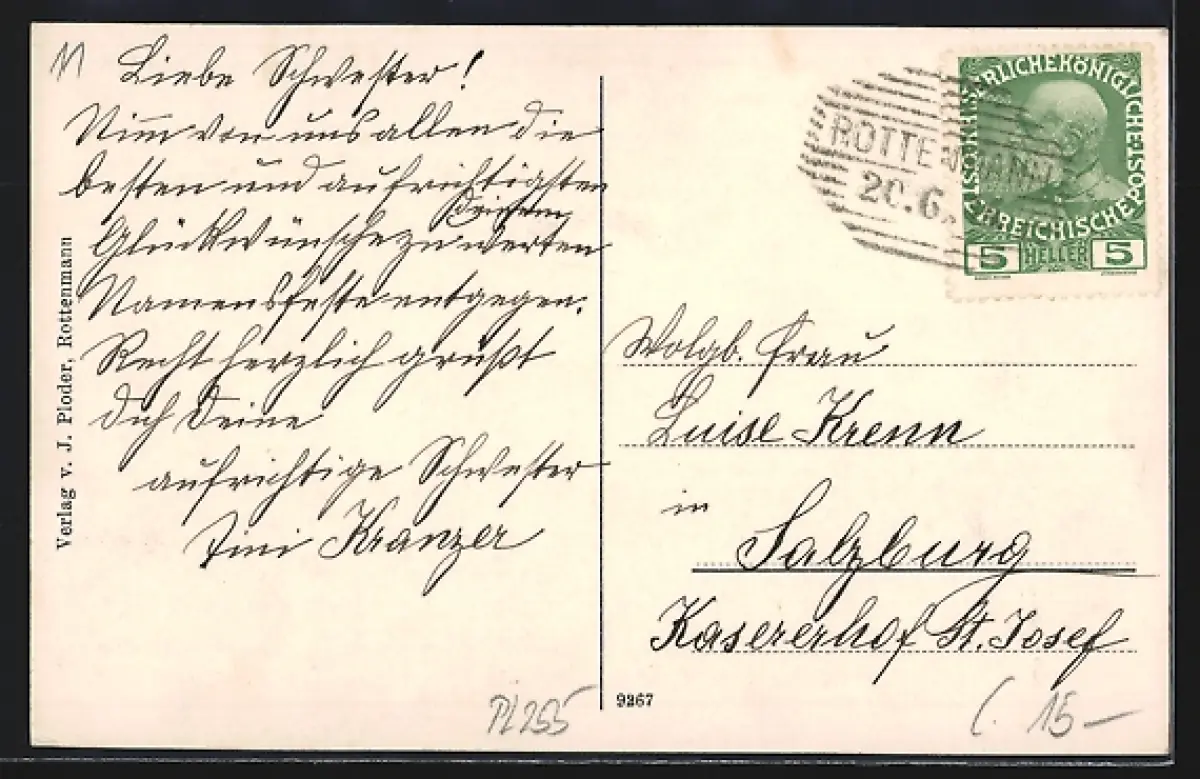 Liebe Schwester!
Nim̅ von uns allen die
besten und aufrichtigsten
Glückwünsche zu Deinem werten
Namensfeste entgegen.
Recht herzlich grüßt
dich Deine
aufrichtige Schwester
Tini Kranzer
Verlag v. J. Ploder, Rottenmann
KAISERLICHEKÖNIGLICHE ÖSTERREICHISCHE POST
5 HELLER 5
ROTTENMANN
20.6.
Wolgb. Frau
Luise Krenn
in
Salzburg
Kasererhof St. Josef
9267
Pl 255
15-